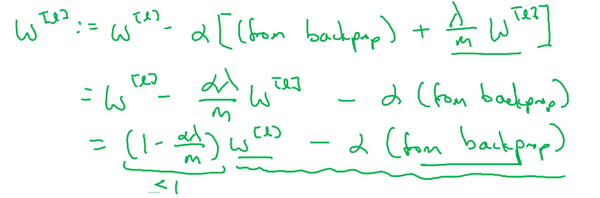 W^[l] := W^[l] - α [(from backprop) + λ/m W^[l]]
= W^[l] - αλ/m W^[l] - α (from backprop)
= (1 - αλ/m) W^[l] - α (from backprop)
< 1